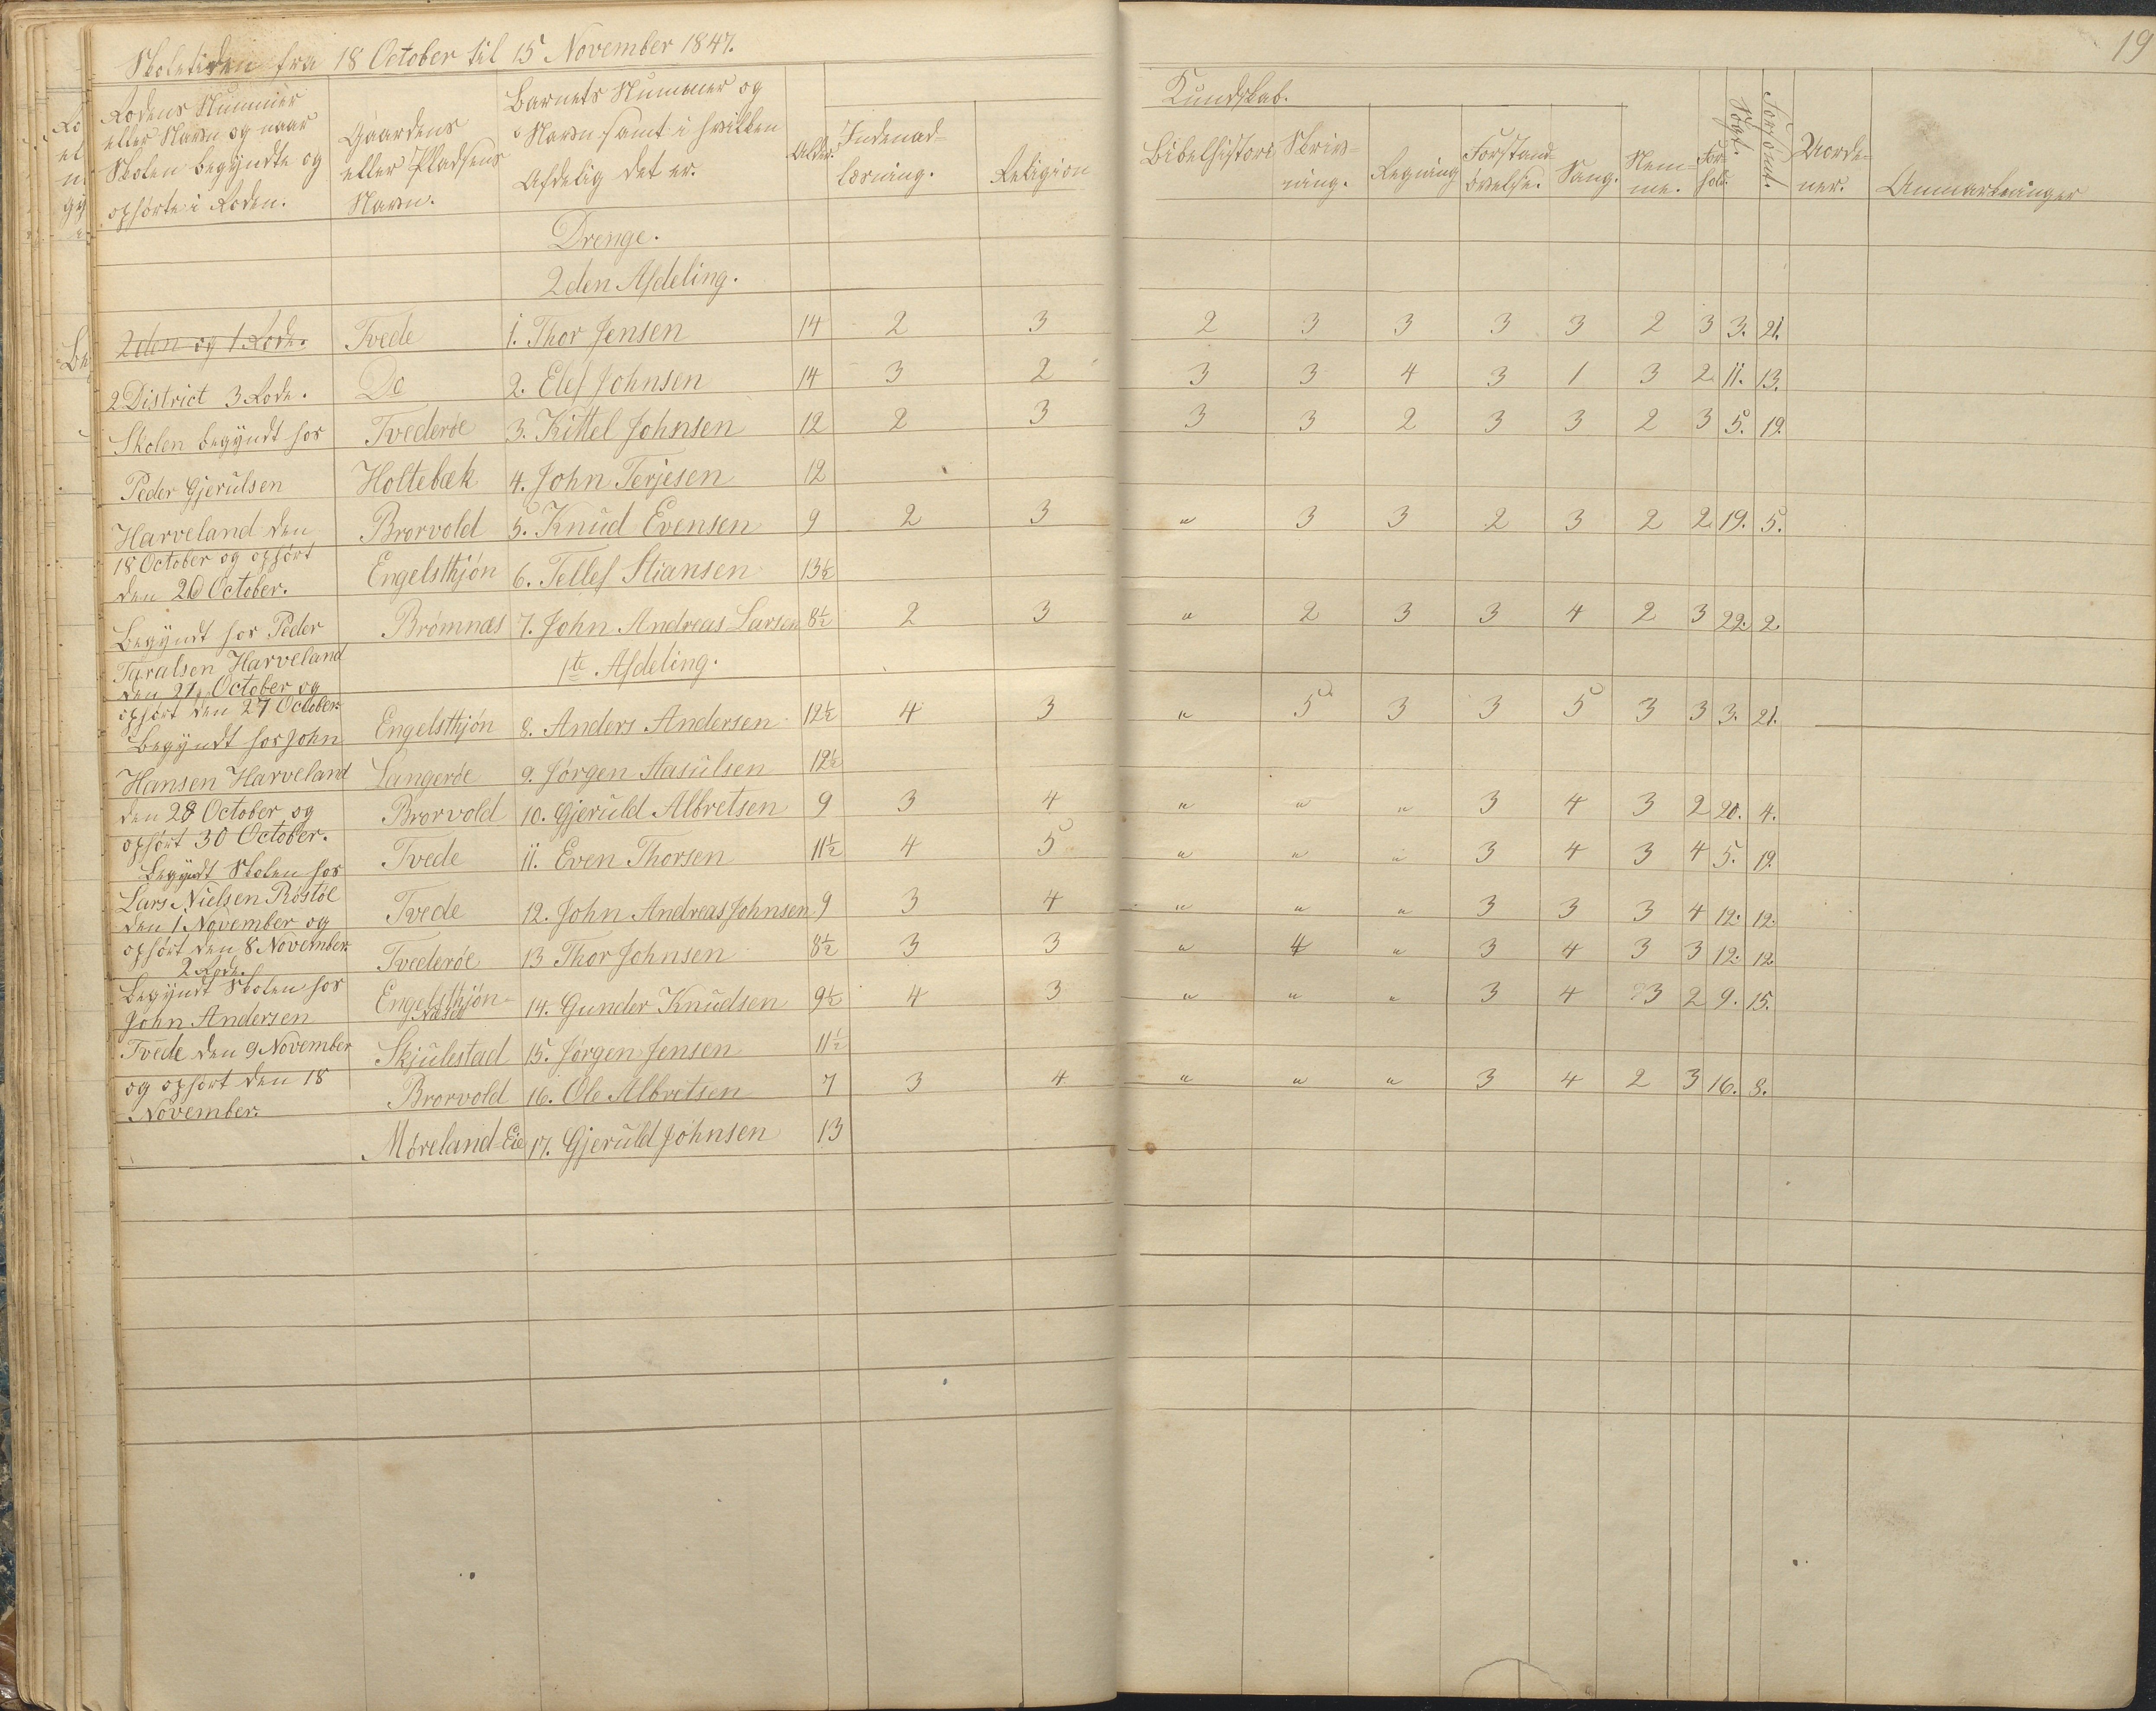 Skoletiden fra 18 October til 15 November 1847.
19
Rodens Nummer eller Navn og naar Skolen begyndte og ophørte i Roden.
Gaardens eller Pladsens Navn.
Barnets Nummer og Navn samt i hvilken Afdelig det er.
Alder.
Kundskab.
Indenad-læsning.
Religion
Bibelhistori
Skriv-ning.
Regning
Forstand-øvelse.
Sang.
Nem-me.
For-hold.
Søgt.
Forsømt.
Uorde-ner.
Anmærkninger
Drenge.
2den Afdeling.
2den og 1 Rode. Tvede 1. Thor Jensen 14 2 3 2 3 3 3 3 2 3 3. 21.
2 District 3 Rode. Do 2. Elef Johnsen 14 3 2 3 3 4 3 1 3 2 11. 13.
Skolen begyndt hos Tvederøe 3. Kittel Johnsen 12 2 3 3 3 2 3 3 2 3 5. 19.
Peder Gjerulsen Holtebæk 4. John Terjesen 12
Harveland den Brorvold 5. Knud Evensen 9 2 3 " 3 3 2 3 2 2 19. 5.
18 October og ophørt
den 20 October. Engelsthjøn 6. Tellef Stiansen 13½
Begyndt hos Peder Brømnæs 7. John Andreas Larsen 8½ 2 3 " 2 3 3 4 2 3 22. 2.
Taralsen Harveland 1te Afdeling.
den 21 October og
ophørt den 27 October.
Begyndt hos John Engelsthjøn 8. Anders Andersen 12½ 4 3 " 5 3 3 5 3 3 3. 21.
Hansen Harveland Langerøe 9. Jørgen Aasulsen 12½
den 28 October og Brorvold 10. Gjeruld Albretsen 9 3 4 " " " 3 4 3 2 20. 4.
ophørt 30 October.
Begyndt Skolen hos Tvede 11. Even Thorsen 11½ 4 5 " " " 3 4 3 4 5. 19.
Lars Nielsen Røstøe
den 1 November og Tvede 12. John Andreas Johnsen 9 3 4 " " " 3 3 3 4 12. 12.
ophørt den 8 November.
2 Rode. Tvederøe 13 Thor Johnsen 8½ 3 3 " 4 " 3 4 3 3 12. 12.
Begyndt Skolen hos
John Andersen Engelsthjøn-Næset 14. Gunder Knudsen 9½ 4 3 " " " 3 4 3 2 9. 15.
Tvede den 9 November Skjulestad 15. Jørgen Jensen 11½
og ophørt den 18 Brorvold 16. Ole Albretsen 7 3 4 " " " 3 4 2 3 16. 8.
November.
Møreland-Eie 17. Gjeruld Johnsen 13